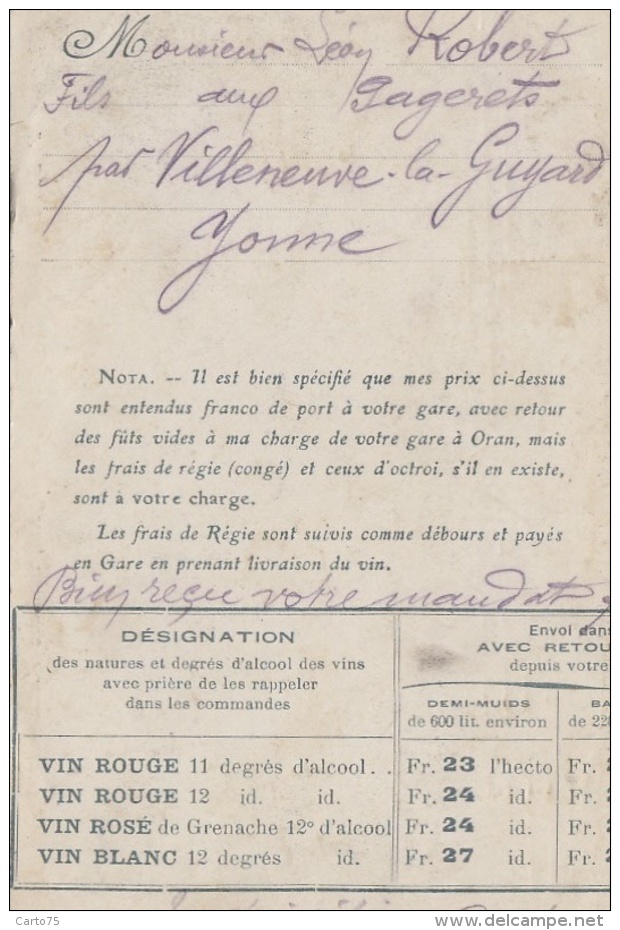 Monsieur Léon Robert
Fils aux Gagerets
par Villeneuve-la-Guyard
Yonne
NOTA. -- Il est bien spécifié que mes prix ci-dessus
sont entendus franco de port à votre gare, avec retour
des fûts vides à ma charge de votre gare à Oran, mais
les frais de régie (congé) et ceux d'octroi, s'il en existe,
sont à votre charge.
Les frais de Régie sont suivis comme débours et payés
en Gare en prenant livraison du vin.
Bien reçu votre mandat
DÉSIGNATION
des natures et degrés d'alcool des vins
avec prière de les rappeler
dans les commandes
Envoi dans
AVEC RETOU
depuis votre
DEMI-MUIDS
de 600 lit. environ
BA
de 22
VIN ROUGE 11 degrés d'alcool. . Fr. 23 l'hecto Fr.
VIN ROUGE 12 id. id. Fr. 24 id. Fr.
VIN ROSÉ de Grenache 12° d'alcool Fr. 24 id. Fr.
VIN BLANC 12 degrés id. Fr. 27 id. Fr.
Carto75
delcampe.net